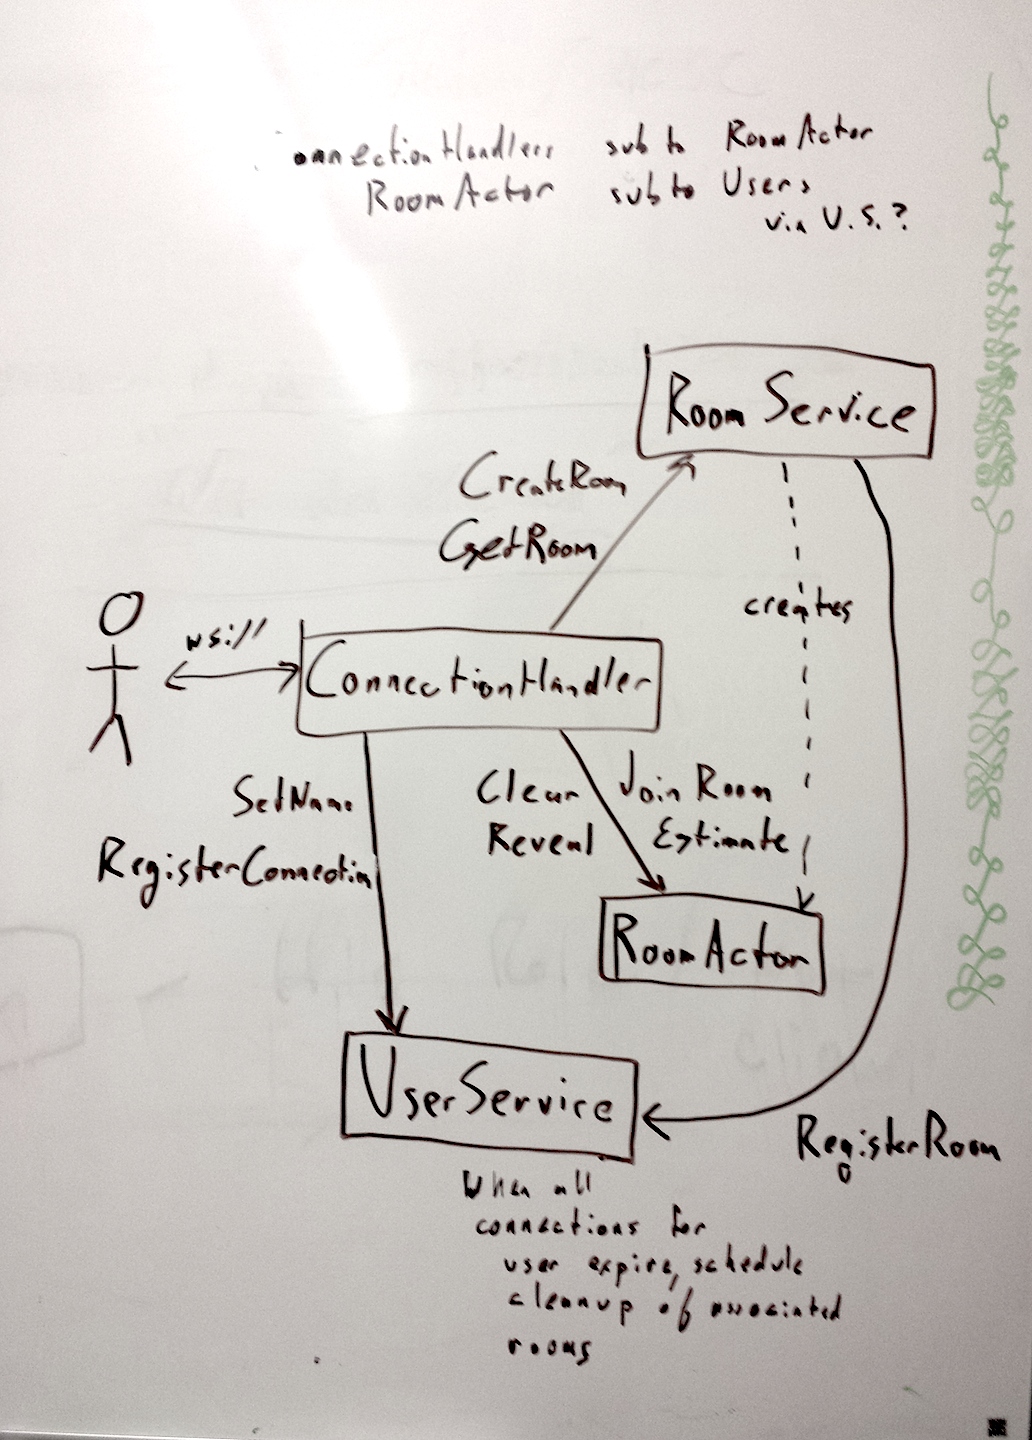 ConnectionHandlers sub to RoomActor
RoomActor sub to Users
via U.S.?
Room Service
CreateRoom
GetRoom
creates
ws://
ConnectionHandler
SetName
RegisterConnection
Clear
Reveal
Join Room
Estimate
RoomActor
UserService
RegisterRoom
When all
connections for
user expire, schedule
cleanup of associated
rooms